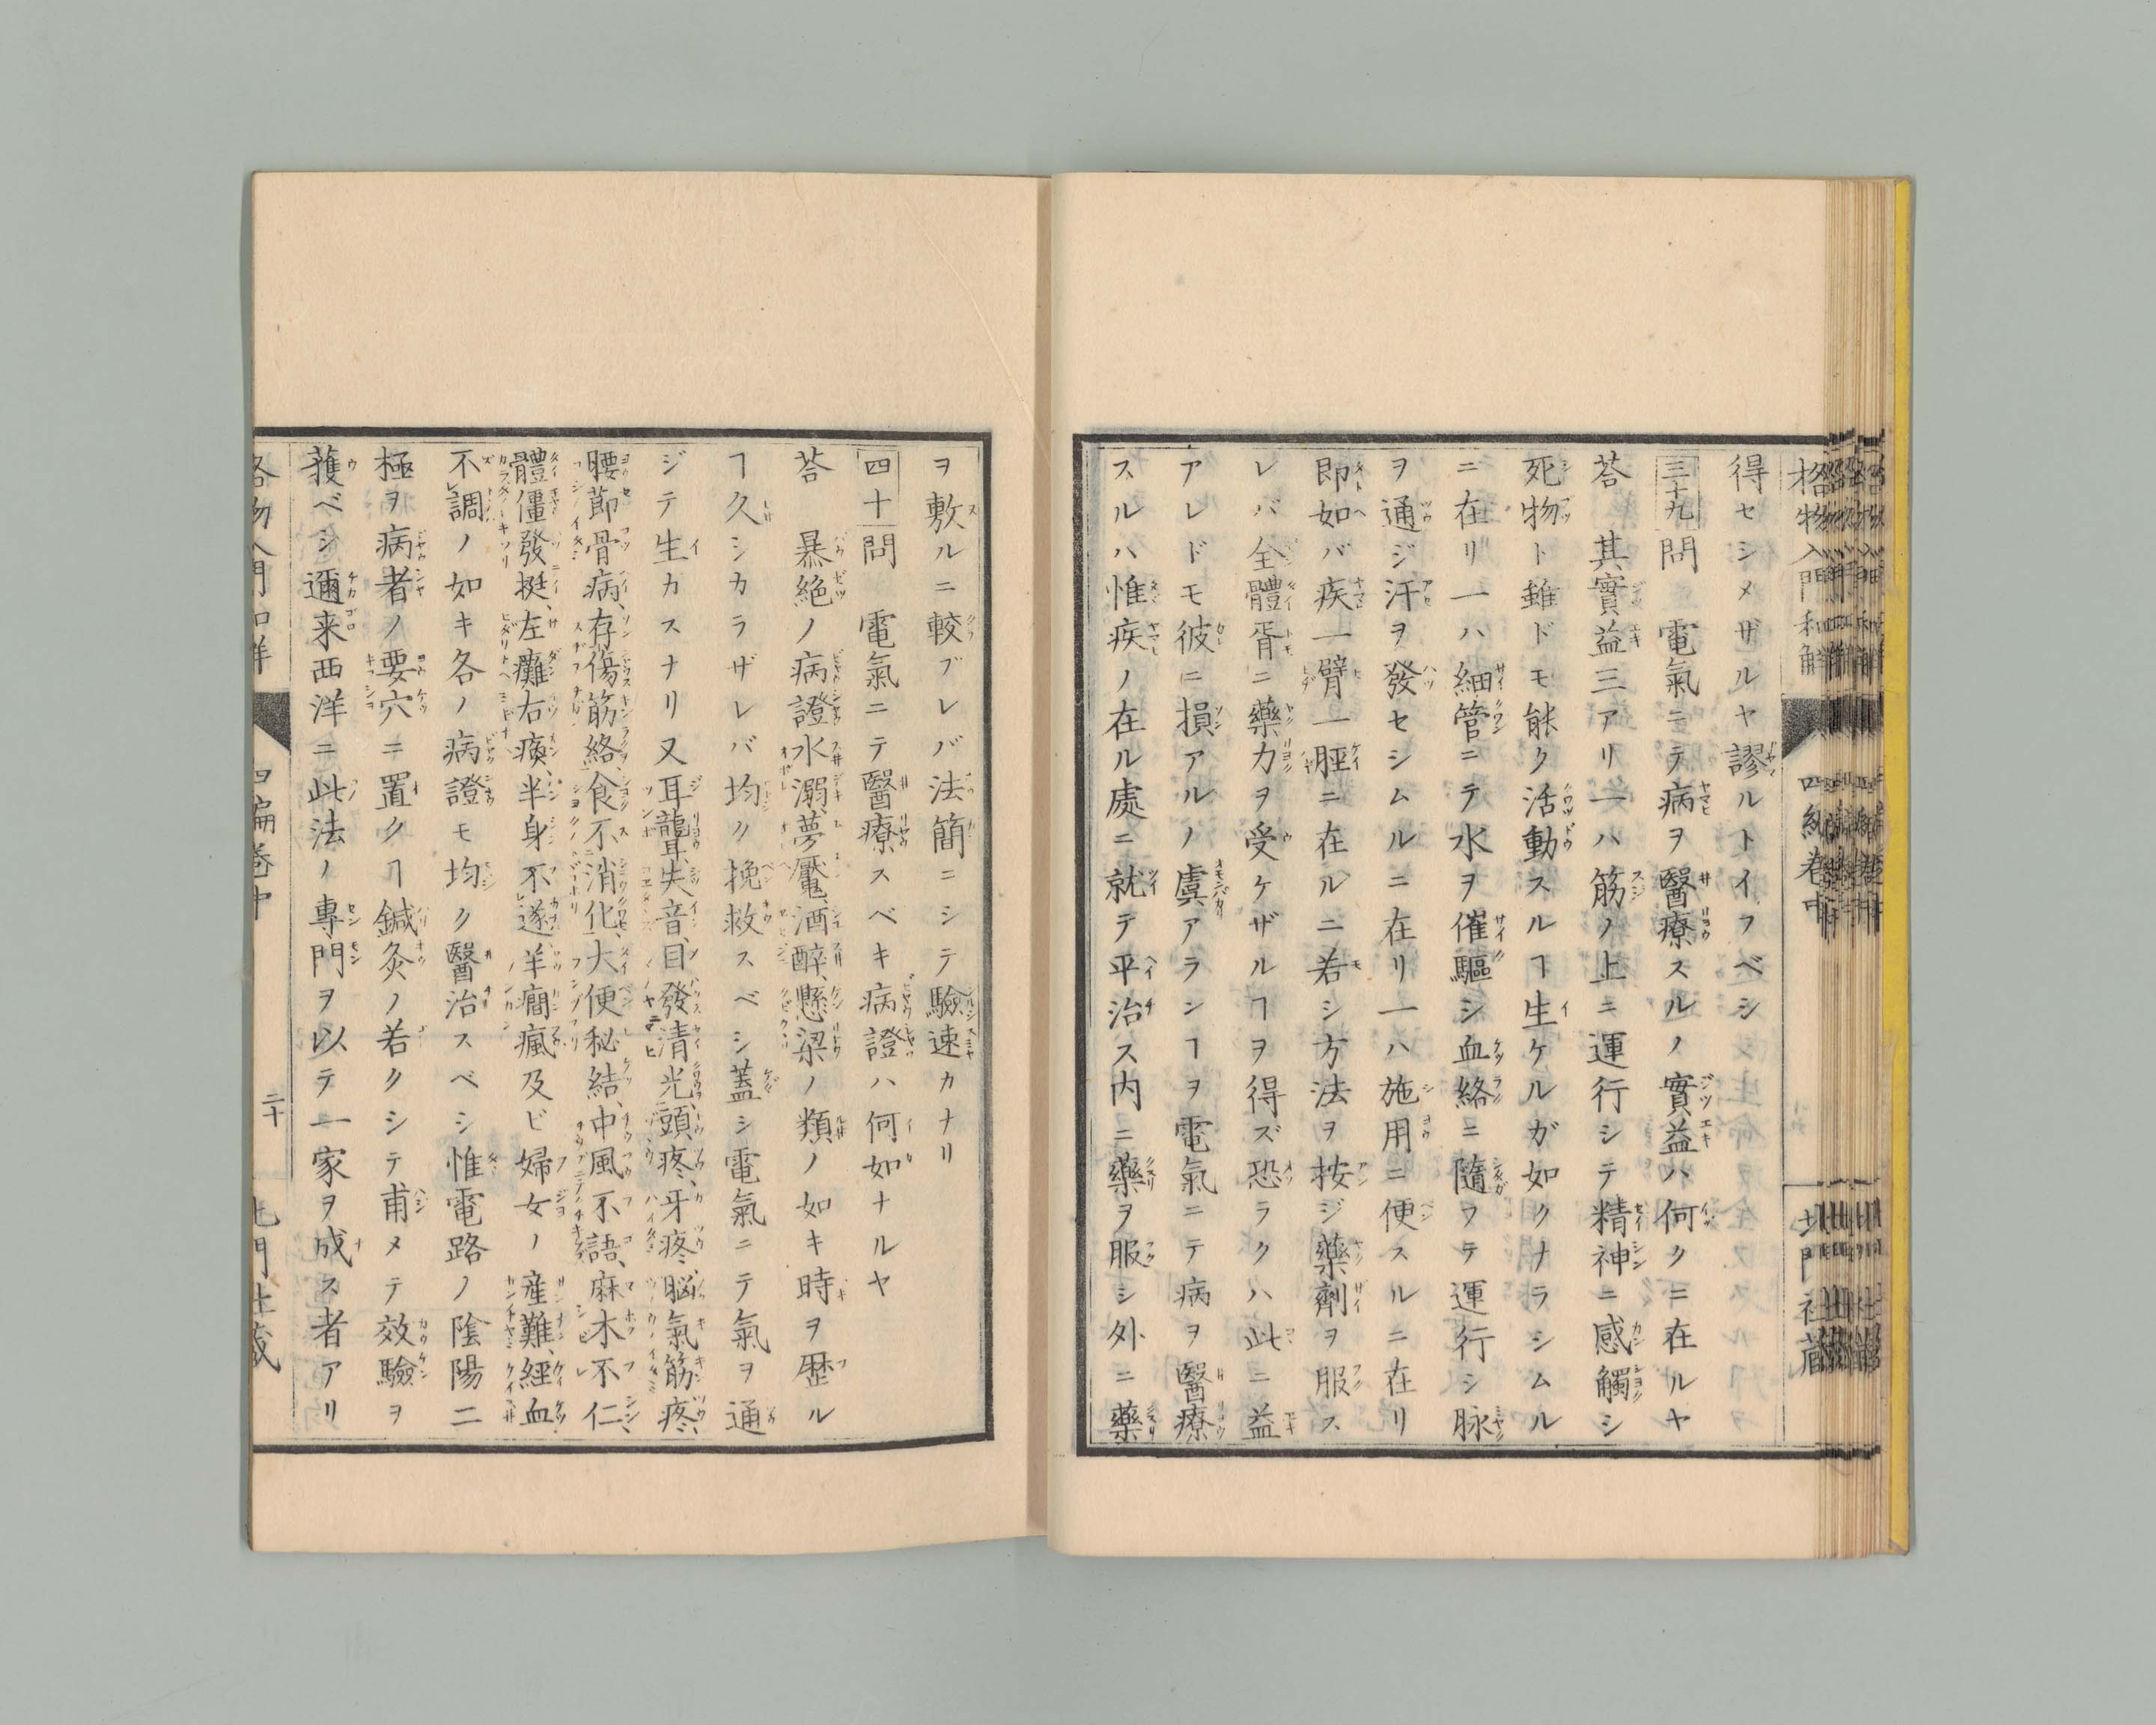 格物入門和解
四編卷中
北門社藏
得セシメザルヤ謬ルトイフベシ
三十九問　電氣ニテ病ヲ醫療スルノ實益ハ何クニ在ルヤ
荅　其實益三アリ一ハ筋ノ上ニ運行シテ精神ニ感觸シ
死物ト雖ドモ能ク活動スルヿ生ケルガ如クナラシムル
ニ在リ一ハ細管ニテ水ヲ催驅シ血絡ニ隨フテ運行シ脉
ヲ通ジ汗ヲ發セシムルニ在リ一ハ施用ニ便スルニ在リ
即如バ疾一臂一脛ニ在ルニ若シ方法ヲ按ジ藥劑ヲ服ス
レバ全體胥ニ藥力ヲ受ケザルヿヲ得ズ恐ラクハ此ニ益
アレドモ彼ニ損アルノ虞アラシヿヲ電氣ニテ病ヲ醫療
スルハ惟疾ノ在ル處ニ就テ平治ス内ニ藥ヲ服シ外ニ藥
ヲ敷ルニ較ブレバ法簡ニシテ驗速カナリ
四十問　電氣ニテ醫療スベキ病證ハ何如ナルヤ
荅　暴絶ノ病證水溺、夢魘、酒醉、懸梁ノ類ノ如キ時ヲ歴ル
ヿ久シカラザレバ均ク挽救スベシ蓋シ電氣ニテ氣ヲ通
ジテ生カスナリ又耳聾、失音、目發清光、頭疼、牙疼、脳氣筋疼、
腰節骨病、存傷筋絡、食不消化、大便秘結、中風不語、麻木不仁、
體僵發挺、左癱右瘓、半身不遂、羊癇瘋及ビ婦女ノ産難、經血
不調ノ如キ各ノ病證モ均ク醫治スベシ惟電路ノ陰陽二
極ヲ病者ノ要穴ニ置クヿ鍼灸ノ若クシテ甫メテ效驗ヲ
獲ベシ邇来西洋ニ此法ノ專門ヲ以テ一家ヲ成ス者アリ
格物入門和解
四編卷中
二十
北門社藏